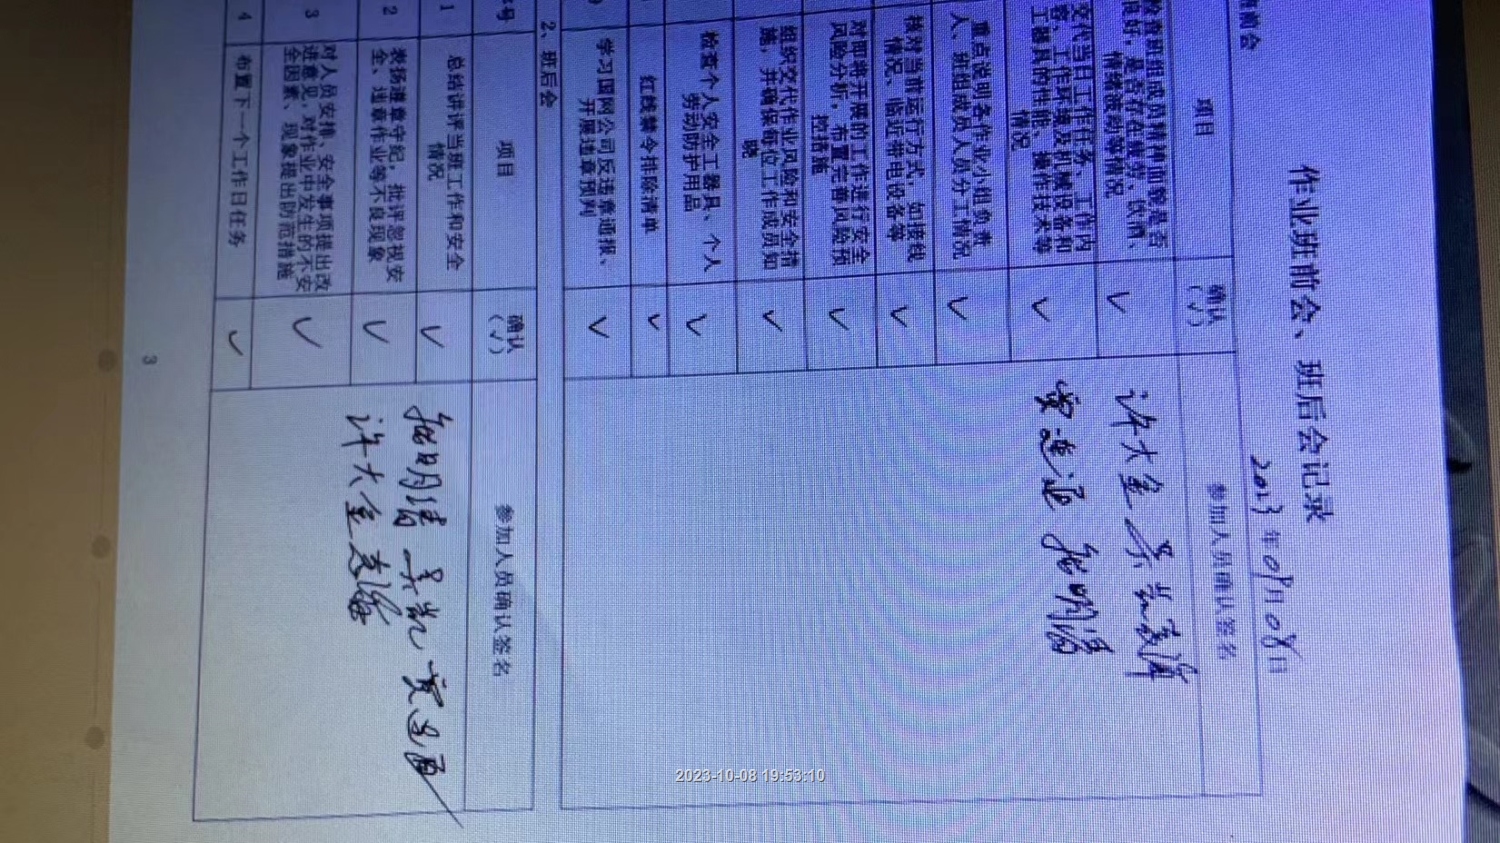 作业班前会、班后会记录
2023年08月08日
班前会
项目 确认（√） 参加人员确认签名
检查班组成员精神面貌是否
良好，是否存在疲劳、饮酒、
情绪波动等情况 √
交代当日工作任务、工作内
容、工作环境及机械设备和
工器具的性能、操作技术等
情况 √
重点说明各作业小组负责
人、班组成员人员分工情况 √
核对当前运行方式，如接线
情况、临近带电设备等 √
对即将开展的工作进行安全
风险分析，布置完善风险预
控措施 √
组织交代作业风险和安全措
施，并确保每位工作成员知
晓 √
检查个人安全工器具、个人
劳动防护用品 √
红线禁令排除清单 √
学习国网公司反违章通报、
开展违章预判 √
许大金
2、班后会
号 项目 确认（√） 参加人员确认签名
1 总结讲评当班工作和安全
情况 √
2 表扬遵章守纪，批评忽视安
全、违章作业等不良现象 √
3 对人员安排、安全事项提出改
进意见，对作业中发生的不安
全因素、现象提出防范措施 √
4 布置下一个工作日任务 √
许大金
3
2023-10-08 19:53:10